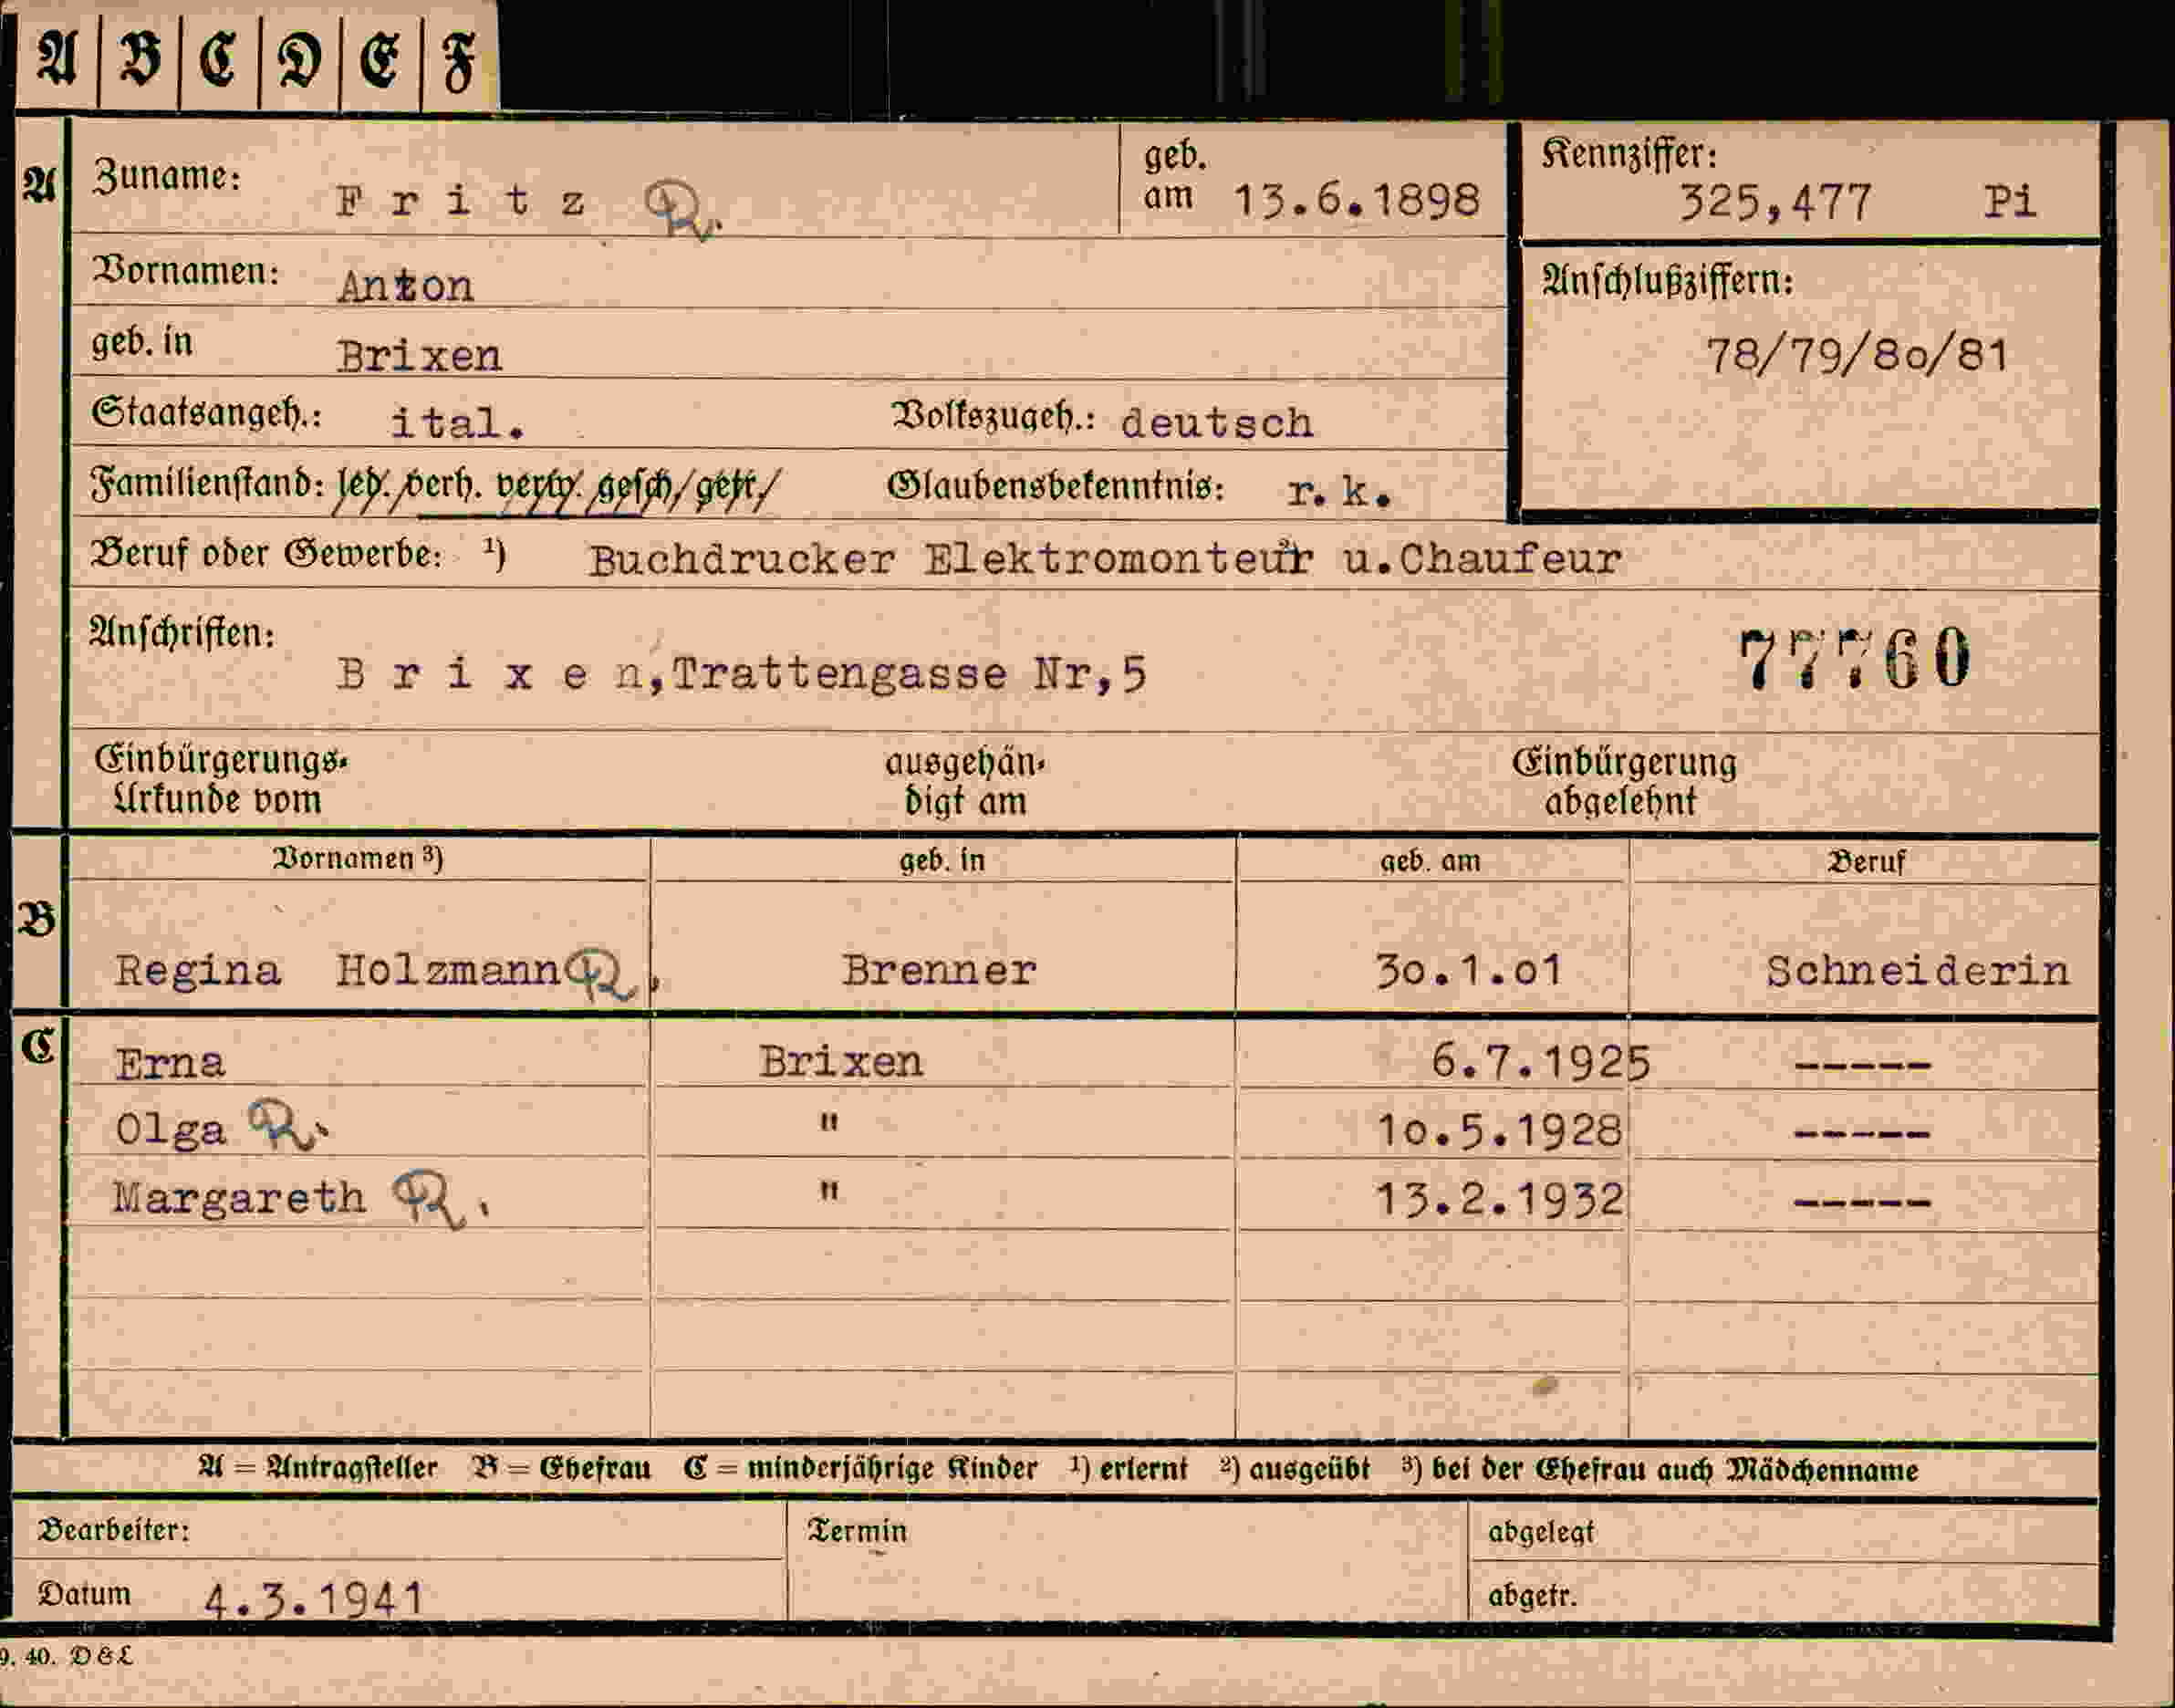 A B C D E F
A Zuname: Fritz R. geb. am 13.6.1898 Kennziffer: 325,477 Pi
Vornamen: Anton Anschlußziffern:
geb. in Brixen 78/79/80/81
Staatsangeh.: ital. Volkszugeh.: deutsch
Familienstand: led. verh. verw. gesch. getr. Glaubensbekenntnis: r. k.
Beruf oder Gewerbe: ¹) Buchdrucker Elektromonteur ²) u.Chaufeur
Anschriften: Brixen,Trattengasse Nr,5 77760
Einbürgerungs-Urkunde vom ausgehändigt am Einbürgerung abgelehnt
Vornamen ³) geb. in geb. am Beruf
B Regina Holzmann R. Brenner 30.1.01 Schneiderin
C Erna Brixen 6.7.1925 -----
Olga R. " 10.5.1928 -----
Margareth R. " 13.2.1932 -----
A = Antragsteller B = Ehefrau C = minderjährige Kinder ¹) erlernt ²) ausgeübt ³) bei der Ehefrau auch Mädchenname
Bearbeiter: Termin abgelegt
Datum 4.3.1941 abgetr.
9. 40. D & L